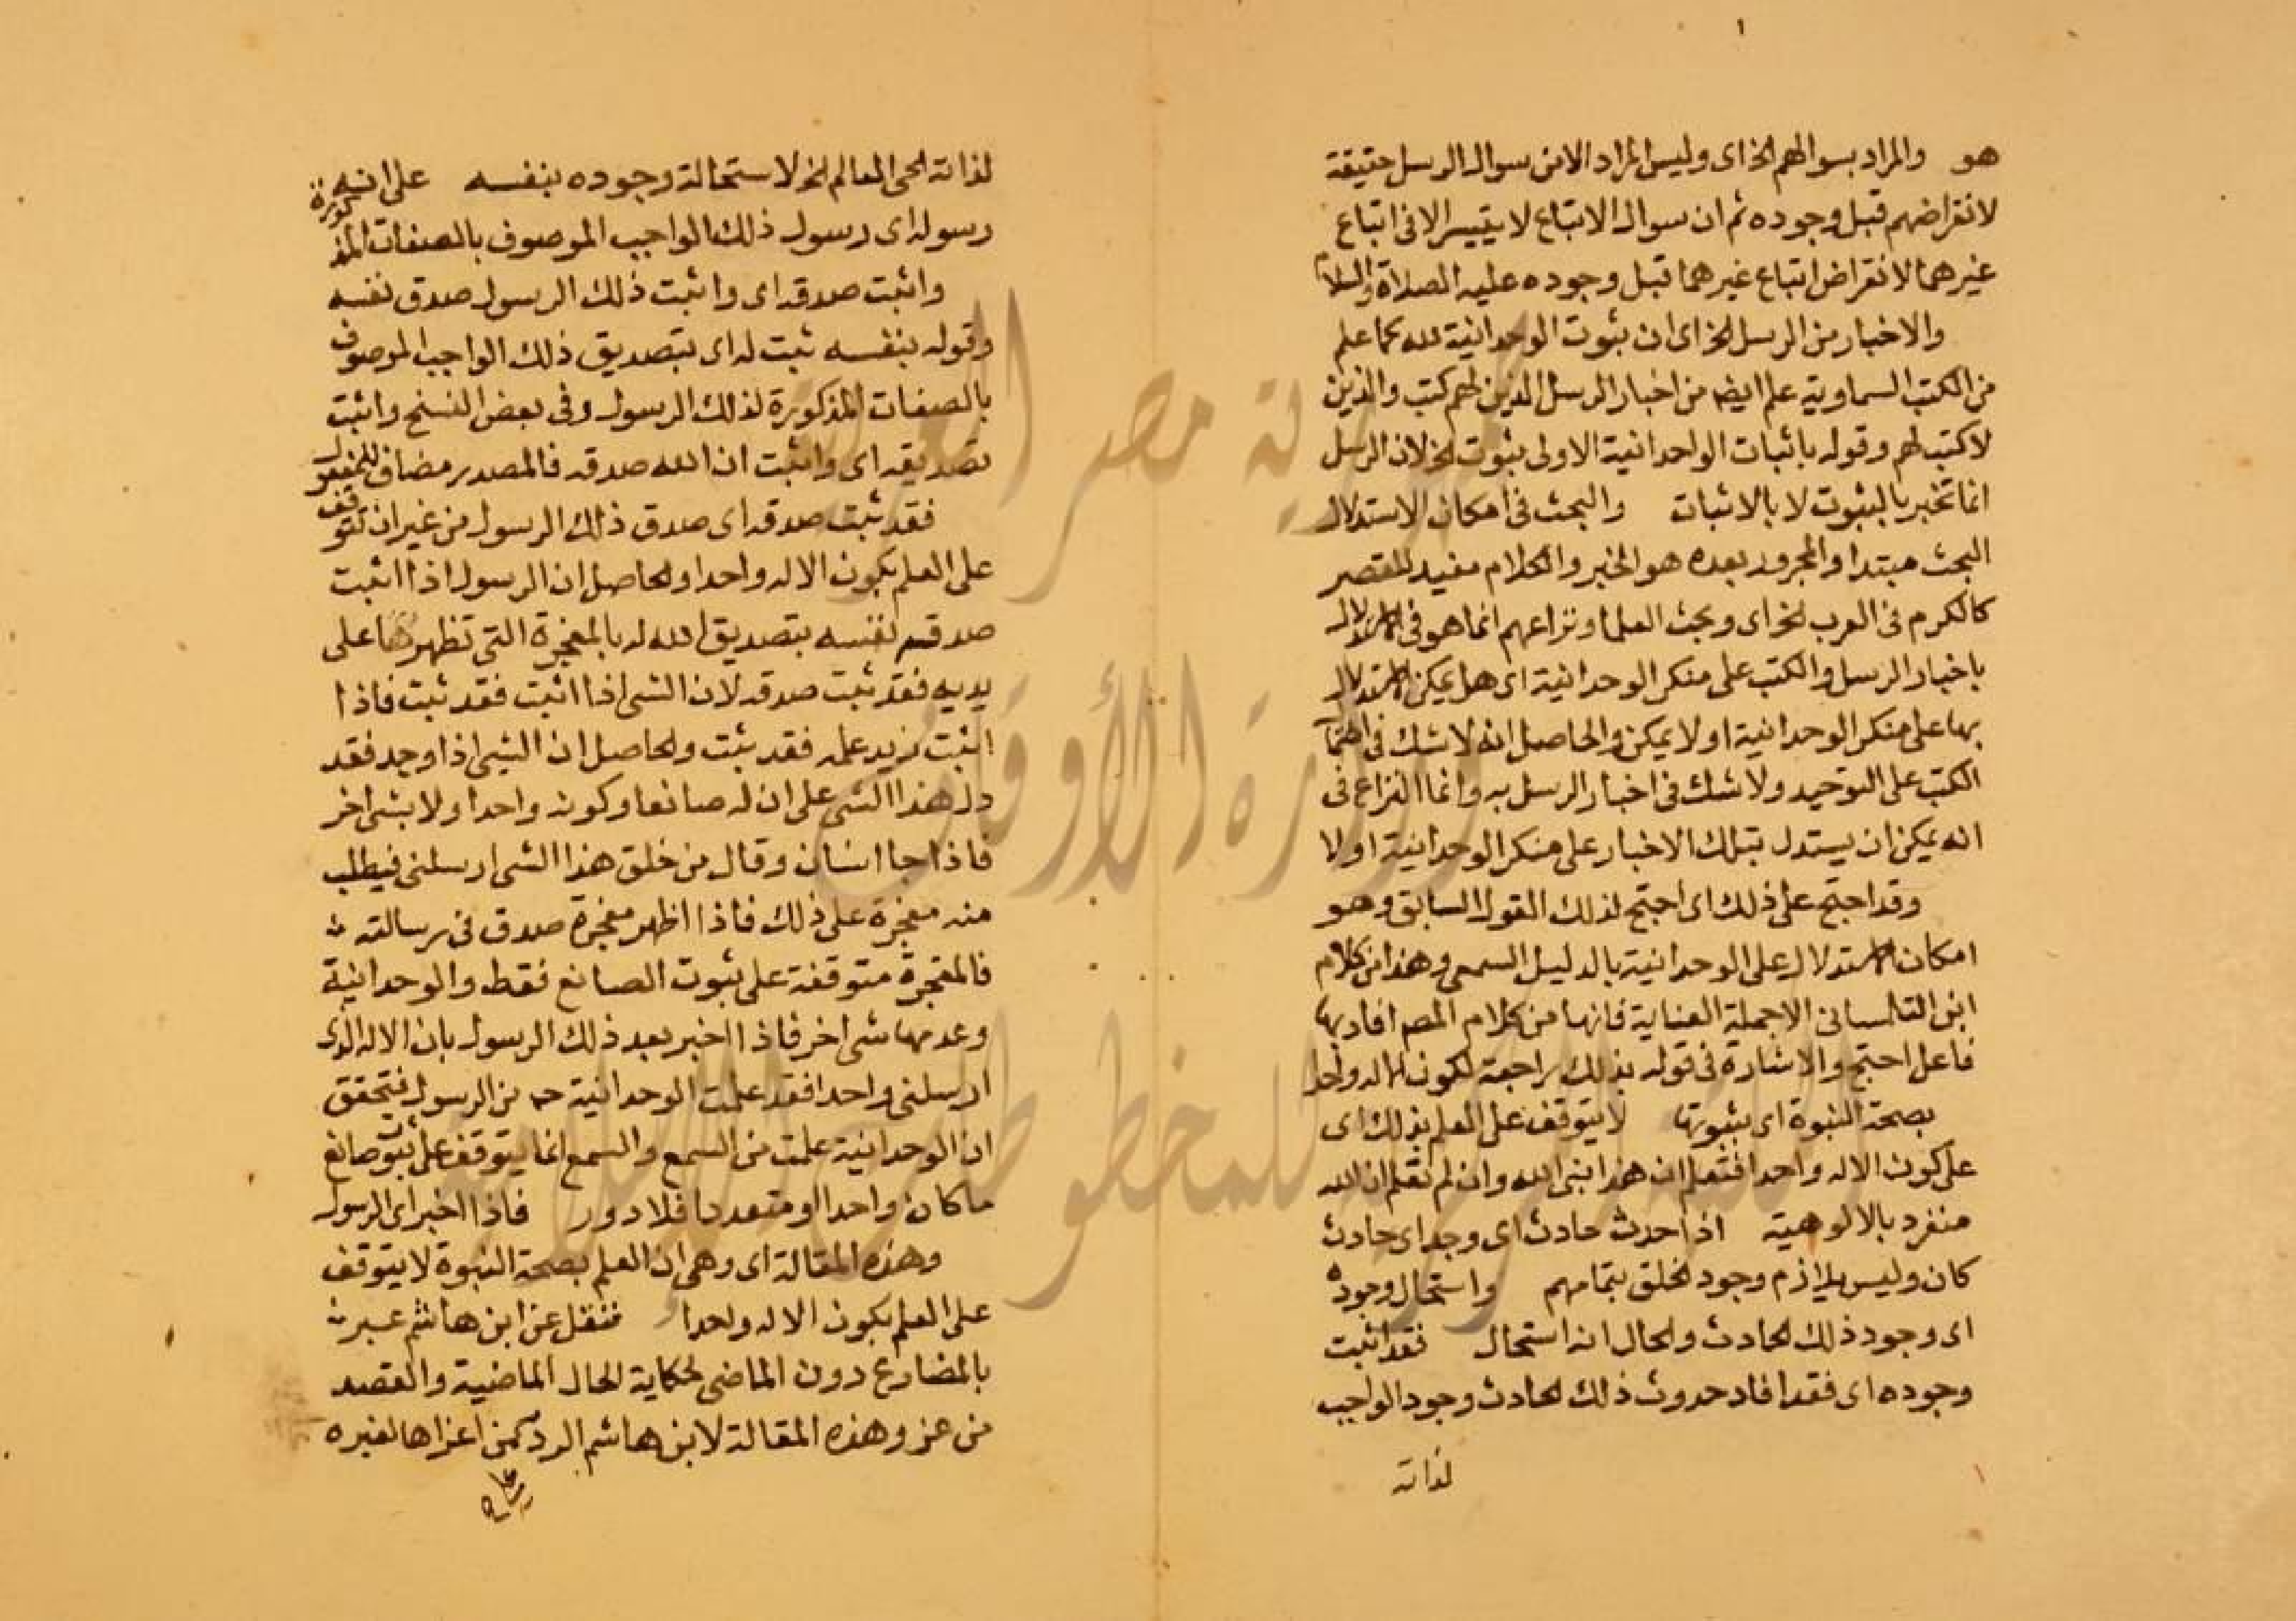 ١
هو والمراد بسوالهم الخ اى وليس المراد الامن سوال الرسل حقيقة
لانقراضهم قبل وجوده ثم ان سوال الاتباع لا يتيسر الا فى اتباع
غيرهما لانقراض اتباع غيرهما قبل وجوده عليه الصلاة والسلام
والاخبار من الرسل الخ اى ان ثبوت الوحدانية لله كما علم
من الكتب السماوية علم ايضا من اخبار الرسل الذين لهم كتب والذين
لا كتب لهم وقوله باثبات الواحدانية الاولى بثبوت الخ لان الرسل
انما تخبر بالثبوت لا بالاثبات والبحث فى امكان الاستدلال
البحث مبتدا والمجرور بعده هو الخبر والكلام مفيد للقصر
كالكرم فى العرب الخ اى وبحث العلما ونزاعهم انما هو فى الاستدلال
باخبار الرسل والكتب على منكر الوحدانية اى هل يمكن الاستدلال
بها على منكر الوحدانية او لا يمكن والحاصل انه لا شك فى
الكتب على التوحيد ولا شك فى اخبار الرسل به وانما النزاع فى
انه يمكن ان يستدل بتلك الاخبار على منكر الوحدانية او لا
وقد احتج على ذلك اى احتج لذلك القول السابق وهو
امكان الاستدلال على الوحدانية بالدليل السمعى وهذا من كلام
ابن التلمسانى الا جملة العناية فانها من كلام المصم افاد بها
فاعل احتج والاشارة فى قوله بذلك راجعة لكون الاله واحدا
بصحة النبوة اى بثبوتها لا يتوقف على العلم بذلك اى
على كون الاله واحدا فتعلم ان هذا نبى الله وان لم تعلم ان الله
منفرد بالالوهية اذا حدث حادث اى وجد اى حادث
كان وليس بلازم وجود الخلق بتمامهم واستحال وجوده
اى وجود ذلك الحادث والحال انه استحال فقد اثبت
وجوده اى فقد افاد حدوث ذلك الحادث وجود الواجب
لذاته
لذاته الحى العالم الخ لاستحالة وجوده بنفسه على انه
رسوله اى رسول ذلك الواجب الموصوف بالصفات المذكورة
واثبت صدقه اى واثبت ذلك الرسول صدق نفسه
وقوله بنفسه ثبت له اى بتصديق ذلك الواجب الموصوف
بالصفات المذكورة لذلك الرسول وفى بعض النسخ واثبت
تصديقه اى واثبت ان الله صدقه فالمصدر مضاف للمفعول
فقد ثبت صدقه اى صدق ذلك الرسول من غير ان تتوقف
على العلم بكون الاله واحدا والحاصل ان الرسول اذا اثبت
صدق نفسه بتصديق الله له بالمعجزة التى تظهرها على
يديه فقد ثبت صدقه لان الشى اذا اثبت فقد ثبت فاذا
اثبت زيد علمه فقد ثبت والحاصل ان الشى اذا وجد فقد
دل هذا الشى على ان له صانعا وكونه واحدا او لا بشى اخر
فاذا جا انسان وقال من خلق هذا الشى ارسلنى فيطلب
منه معجزة على ذلك فاذا اظهر معجزة صدق فى رسالته
فالمعجزة متوقفة على ثبوت الصانع فقط والوحدانية
وعدمها شى اخر فاذا اخبر بعد ذلك الرسول بان الاله الذى
ارسلنى واحدا فقد علمت الوحدانية ح من الرسول فتحقق
ان الوحدانية علمت من السمع والسمع انما يتوقف على ثبوت صانع
ما كان واحدا او متعددا فلا دور فاذا اخبر اى الرسول
وهذه المقالة اى وهى ان العلم بصحة النبوة لا يتوقف
على العلم بكون الاله واحدا فنقل عن ابن هاشم عبر
بالمضارع دون الماضى لحكاية الحال الماضية والقصد
من عزو هذه المقالة لابن هاشم الرد لمن اعزاها لغيره
جمهورية مصر العربية
وزارة الأوقاف